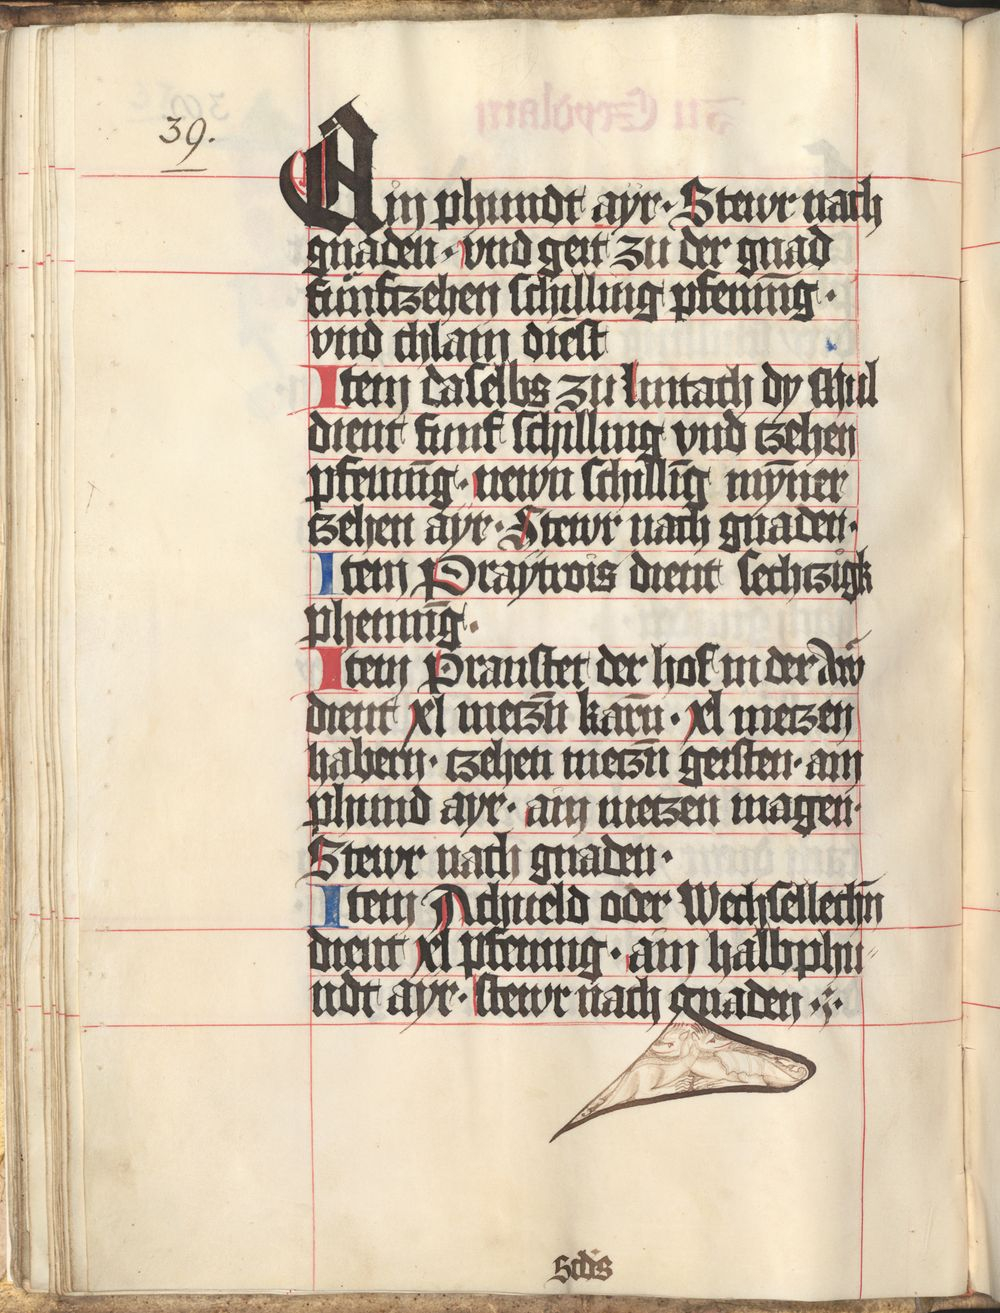 39.
Ain phundt ayr · Stewr nach
gnaden · vnd geit zu der gnad
fünftzehen schilling pfening ·
vnd chlain dienst
Item daselbs zu lintach dy Mul
dient funf schilling vnd tzehen
pfennīg · newn schillīg myner
tzehen ayr · Stewr nach gnaden ·
Item Praytwis dient sechtzigk
phennīg ·
Item Praustet der hof in der Aw
dient xl metzn̄ karn̄ · xl metzen
habern · tzehen metzn̄ gersten · ain
phund ayr · ain metzen magen ·
Stewr nach gnaden ·
Item Achueld oder Wechsellechn̄
dient xl pfennig · ain halbphu
ndt ayr · stewr nach gnaden ·